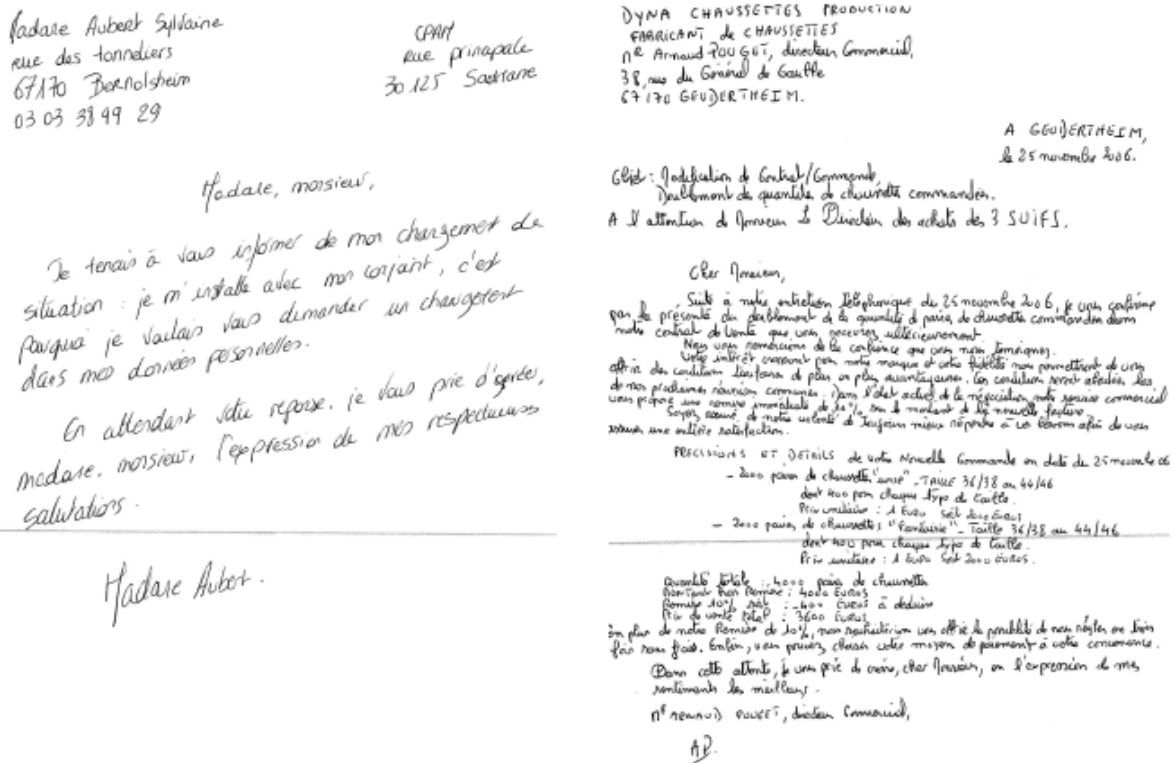 Madame Aubert Sylvaine
rue des tonneliers
67170 Bernolsheim
03 03 38 99 29
CPAM
rue principale
30 125 Saumane
Madame, monsieur,
Je tenais à vous informer de mon changement de
situation : je m'installe avec mon conjoint, c'est
pourquoi je voulais vous demander un changement
dans mes données personnelles.
En attendant votre réponse, je vous prie d'agréer,
madame, monsieur, l'expression de mes respectueuses
salutations.
Madame Aubert.
DYNA CHAUSSETTES PRODUCTION
FABRICANT de CHAUSSETTES
Mr Arnaud POUGET, directeur Commercial,
38, rue du Général de Gaulle
67170 GEUDERTHEIM.
A GEUDERTHEIM,
le 25 novembre 2006.
Objet : Modification de Contrat/Commande,
Doublement des quantités de chaussettes commandées.
A l'attention de Monsieur Le Directeur des achats des 3 SUIFS.
Cher Monsieur,
Suite à notre entretien téléphonique du 25 novembre 2006, je vous confirme
par la présente du doublement de la quantité de paires de chaussettes commandées dans
notre contrat de vente que vous recevrez ultérieurement.
Nous vous remercions de la confiance que vous nous témoignez.
Votre intérêt croissant pour notre marque et votre fidélité nous permettront de vous
offrir des conditions tarifaires de plus en plus avantageuses. Ces conditions seront abordées lors
de nos prochaines réunions communes. Dans l'état actuel de la négociation notre service commercial
vous propose une remise immédiate de 10% sur le montant de la nouvelle facture.
Soyez assuré de notre volonté de toujours mieux répondre à vos besoins afin de vous
assurer une entière satisfaction.
PRECISIONS ET DETAILS de votre Nouvelle Commande en date du 25 novembre 06
- 2000 paires de chaussettes "unie" - TAILLE 36/38 au 44/46
dont 400 pour chaque type de taille.
Prix unitaire : 1 Euro soit 2000 Euros
- 2000 paires de chaussettes "Fantaisie" - Taille 36/38 au 44/46
dont 400 pour chaque type de taille.
Prix unitaire : 1 Euro soit 2000 EUROS.
Quantité totale : 4000 paires de chaussettes
Montant hors Remise : 4000 EUROS
Remise 10% soit : -400 EUROS à déduire
Prix de vente total : 3600 EUROS
En plus de notre Remise de 10%, nous souhaiterions vous offrir la possibilité de nous régler en trois
fois sans frais. Enfin, vous pouvez choisir votre moyen de paiement à votre convenance.
Dans cette attente, je vous prie de croire, cher Monsieur, en l'expression de mes
sentiments les meilleurs.
Mr ARNAUD POUGET, directeur Commercial,
AP.